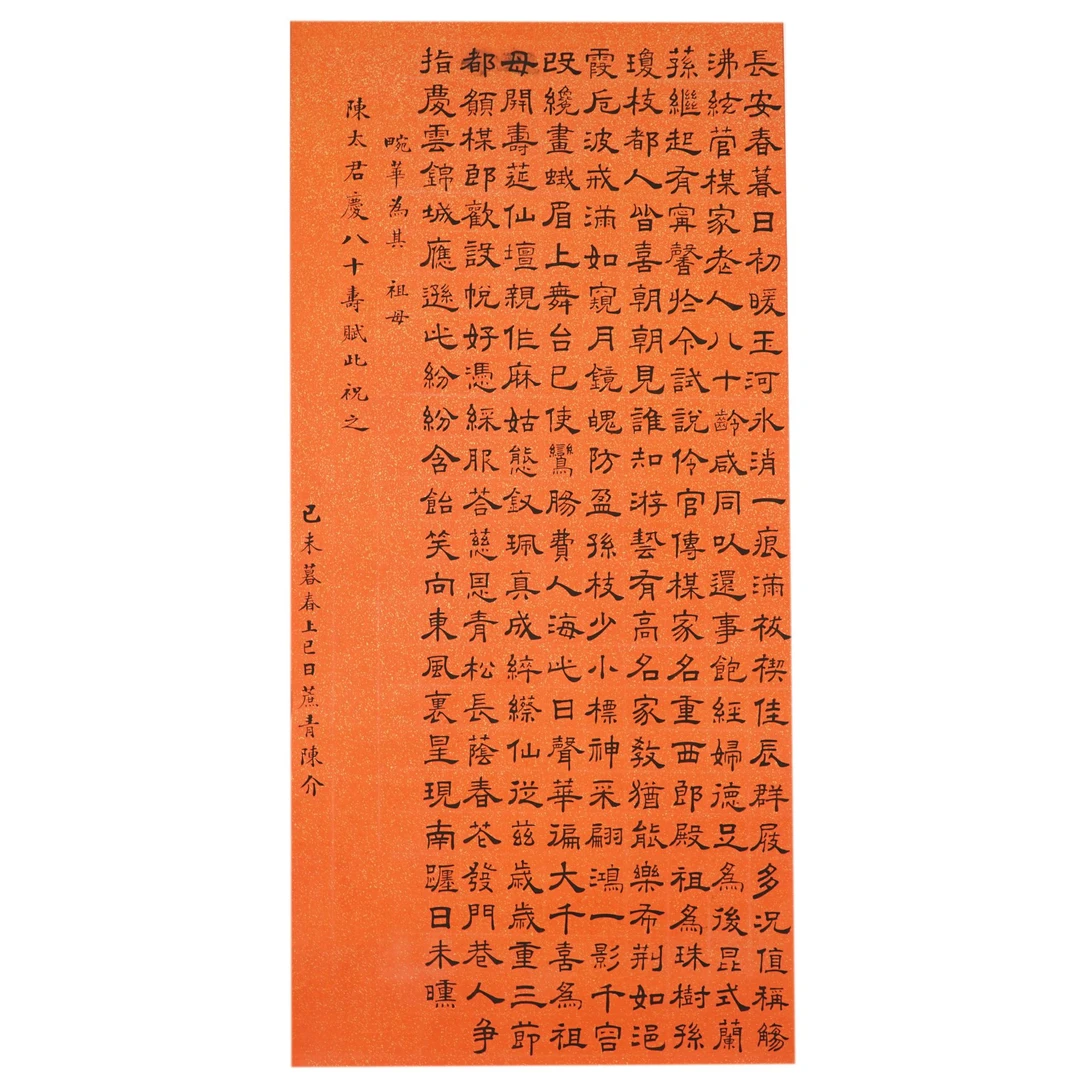 長安春暮日初暖玉河氷消一痕滿祓禊佳辰群屐多況值稱觴
沸絃管楳家老人八十齡咸同以還事飽經婦德足為後昆式蘭
蓀繼起有寗馨於今試說伶官傳楳家名重西郎殿祖為珠樹孫
瓊枝都人皆喜朝朝見誰知游藝有高名家教猶能樂布荆如浥
霞卮波戒滿如窺月鏡魄防盈孫枝少小標神采翩鴻一影千容
改纔畫蛾眉上舞台已使鸞膓費人海此日聲華徧大千喜為祖
母開壽筵仙壇親作麻姑態釵珮真成綷縩仙從茲歲歲重三節
都願楳郎歡設帨好憑綵服荅慈恩青松長蔭春花發門巷人争
指慶雲錦城應遜此紛紛含飴笑向東風裏星現南躔日未曛
畹華為其 祖母
陳太君慶八十壽賦此祝之
己未暮春上巳日蔗青陳介